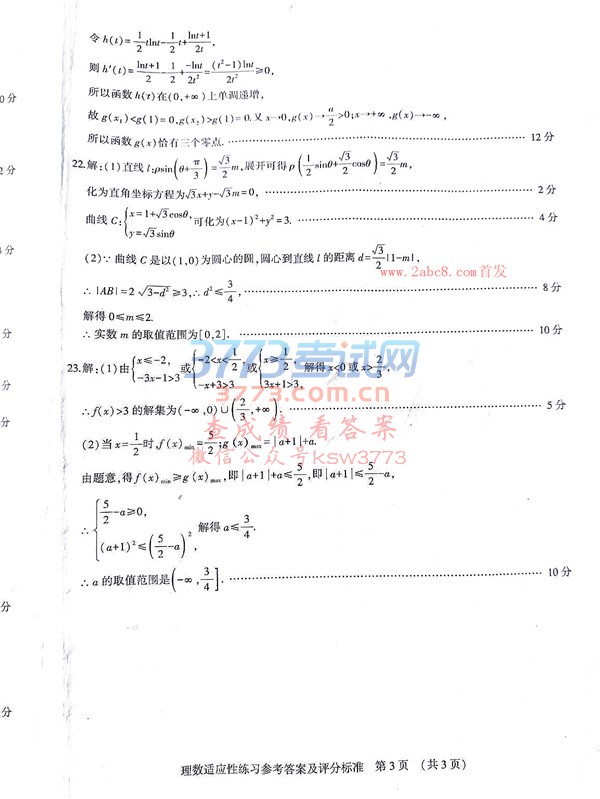 令h(t)=1/2 tlnt-1/2 t+(lnt+1)/(2t),
则h′(t)=(lnt+1)/2-1/2+(-lnt)/(2t²)=((t²-1)lnt)/(2t²)≥0,
0分
所以函数h(t)在(0,+∞)上单调递增,
故g(x₁)<g(1)=0,g(x₂)>g(1)=0.又x→0,g(x)→a/2>0;x→+∞,g(x)→-∞,
所以函数g(x)恰有三个零点. 12分
22.解:(1)直线l:ρsin(θ+π/3)=√3/2 m,展开可得ρ(1/2 sinθ+√3/2 cosθ)=√3/2 m,
2分
化为直角坐标方程为√3x+y-√3m=0, 2分
曲线C:{x=1+√3cosθ, y=√3sinθ 可化为(x-1)²+y²=3. 4分
(2)∵曲线C是以(1,0)为圆心的圆,圆心到直线l的距离d=√3/2|1-m|,
www.2abc8.com首发
∴|AB|=2√(3-d²)≥3,∴d²≤3/4, 8分
解得0≤m≤2.
∴实数m的取值范围为[0,2]. 10分
分
3773考试网
23.解:(1)由{x≤-2, -3x-1>3 或{-2<x<1/2, -x+3>3 或{x≥1/2, 3x+1>3, 解得x<0或x>2/3,
3773.com.cn
∴f(x)>3的解集为(-∞,0)∪(2/3,+∞). 5分
分
查成绩 看答案
(2)当x=1/2时,f(x)min=5/2;g(x)max=|a+1|+a.
微信公众号ksw3773
由题意,得f(x)min≥g(x)max,即|a+1|+a≤5/2,即|a+1|≤5/2-a,
∴{5/2-a≥0, (a+1)²≤(5/2-a)², 解得a≤3/4.
∴a的取值范围是(-∞,3/4]. 10分
分
分
理数适应性练习参考答案及评分标准 第3页 (共3页)